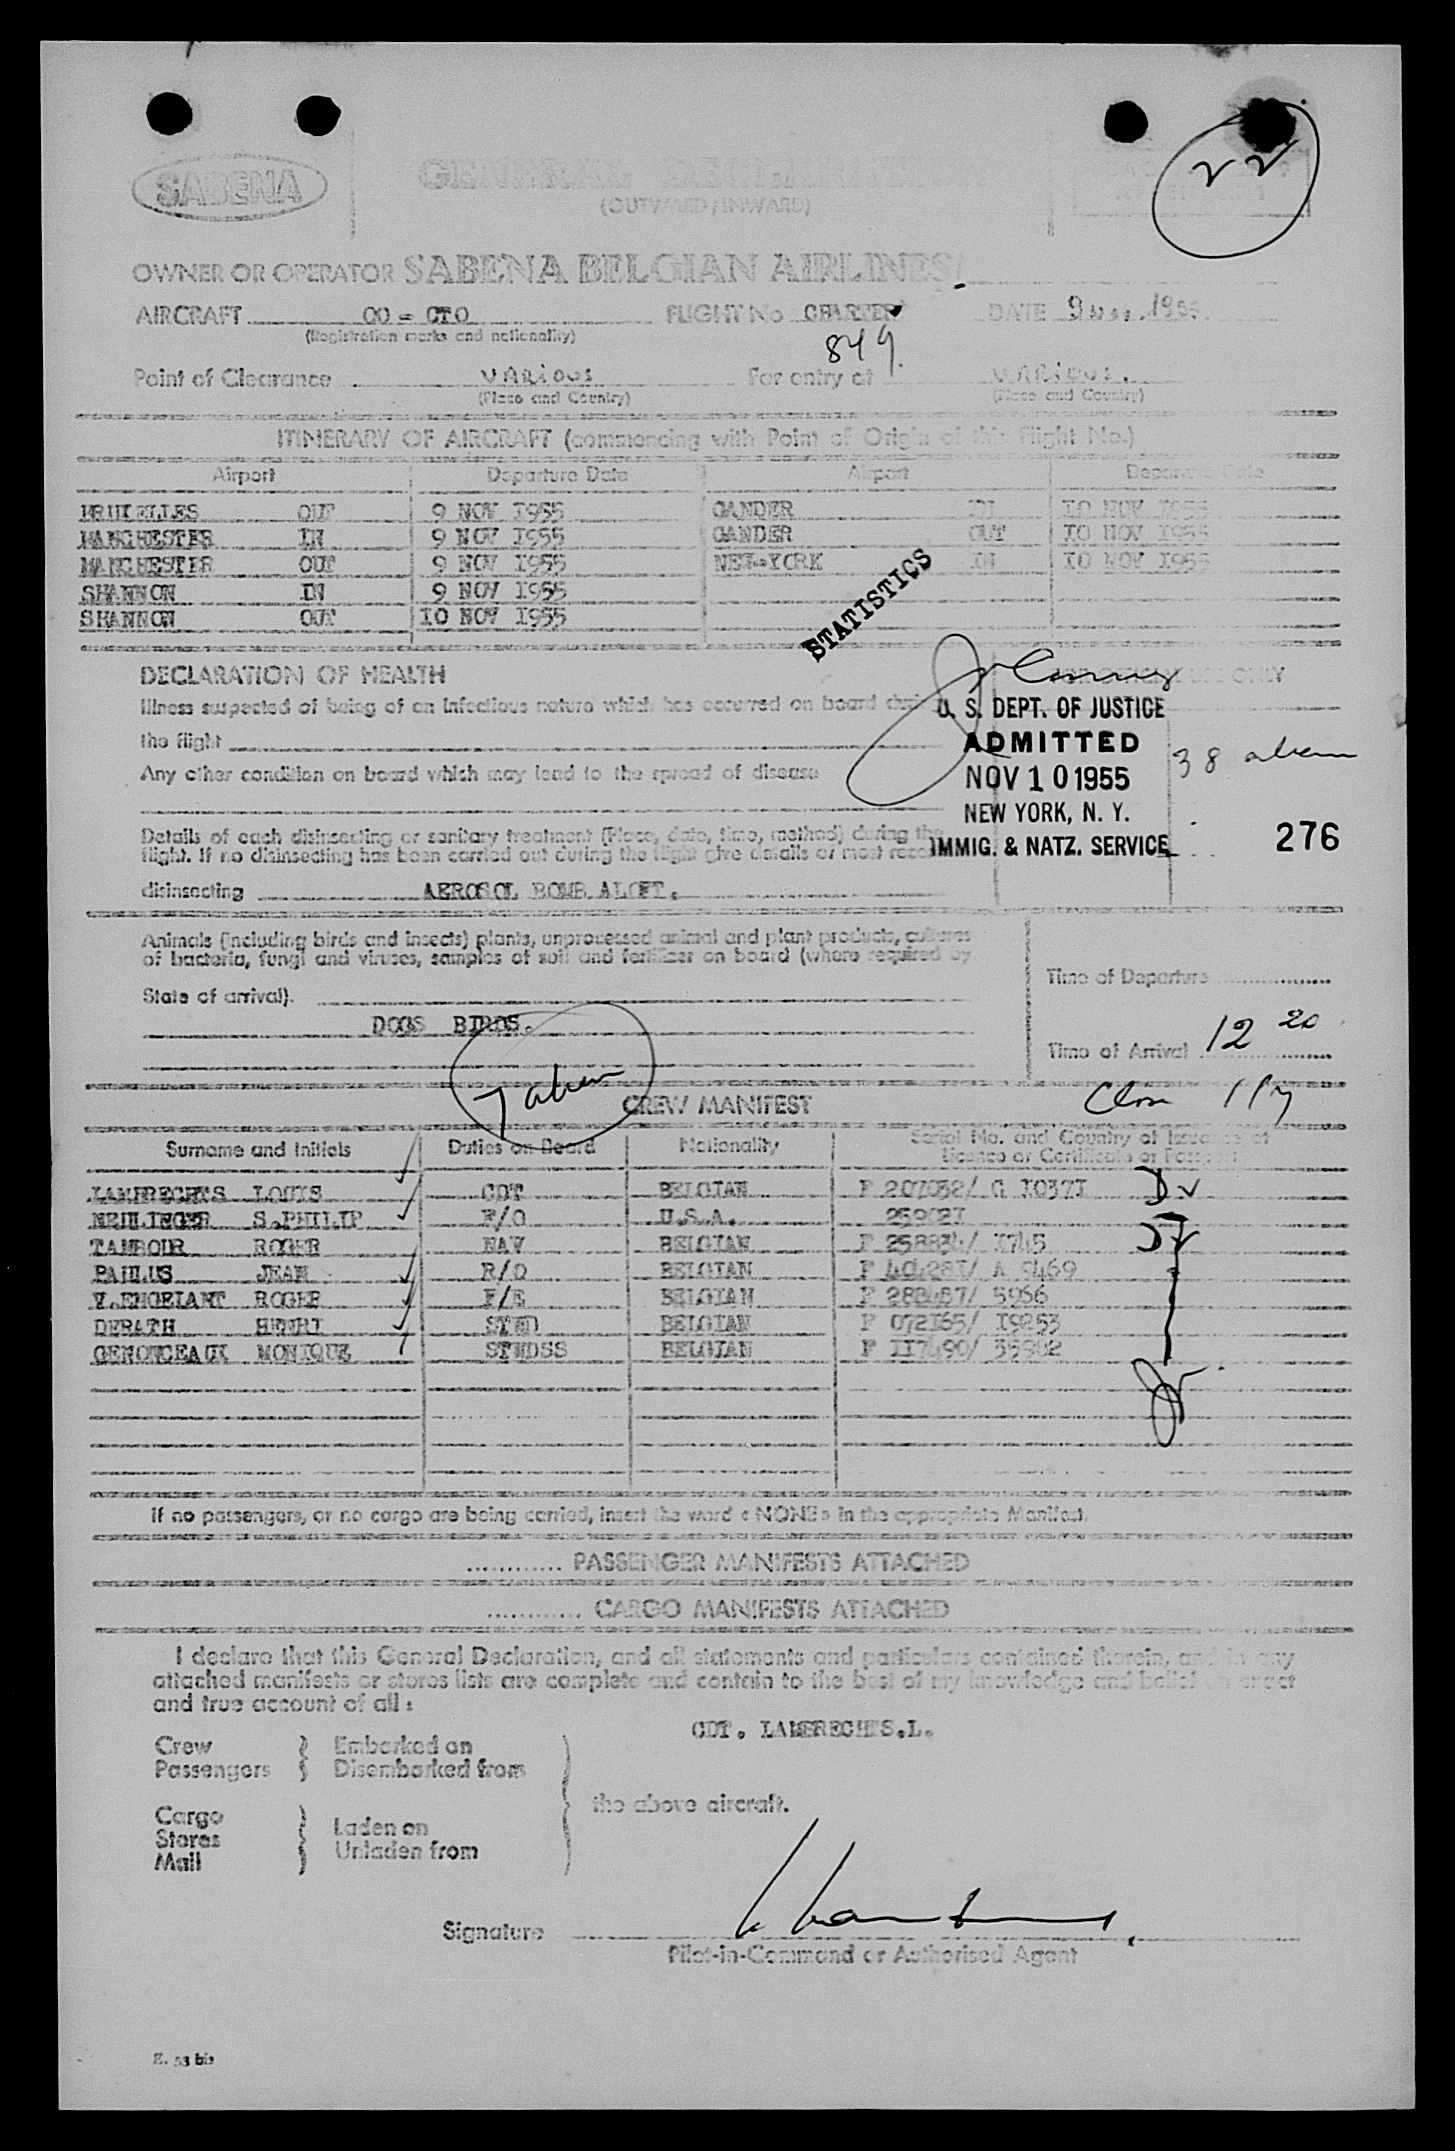 22
SABENA
GENERAL DECLARATION
(OUTWARD / INWARD)
OWNER OR OPERATOR SABENA BELGIAN AIRLINES
AIRCRAFT OO = CTO FLIGHT No CHARTER DATE 9 Nov. 1955.
(Registration marks and nationality)
849.
Point of Clearance VARIOUS For entry at VARIOUS.
(Place and Country) (Place and Country)
ITINERARY OF AIRCRAFT (commencing with Point of Origin of this Flight No.)
Airport Departure Date Airport Departure Date
BRUXELLES OUT 9 NOV I955 GANDER IN IO NOV I955
MANCHESTER IN 9 NOV I955 GANDER OUT IO NOV I955
MANCHESTER OUT 9 NOV I955 NEW-YORK IN IO NOV I955
SHANNON IN 9 NOV I955
SHANNON OUT IO NOV I955
STATISTICS
DECLARATION OF HEALTH USE ONLY
Illness suspected of being of an infectious nature which has occurred on board during
the flight
Any other condition on board which may lead to the spread of disease
U. S. DEPT. OF JUSTICE
ADMITTED
NOV 10 1955
NEW YORK, N. Y.
IMMIG. & NATZ. SERVICE
38 aliens
276
Details of each disinsecting or sanitary treatment (Place, date, time, method) during the
flight. If no disinsecting has been carried out during the flight give details of most recent
disinsecting AEROSOL BOMB ALOFT.
Animals (including birds and insects) plants, unprocessed animal and plant products, cultures
of bacteria, fungi and viruses, samples of soil and fertilizer on board (where required by
State of arrival).
Time of Departure
DOGS BIRDS.
Time of Arrival 12 20
7 aliens
CREW MANIFEST
Surname and Initials Duties on Board Nationality Serial No. and Country of Issuance of
Licence or Certificate or Passport
LAMBRECHTS LOUIS CDT BELGIAN P 207032/ G I037I
NEHLINGER S.PHILIP F/O U.S.A. 25902I
TAMBOUR ROGER NAV BELGIAN P 258834/ I745
PAULUS JEAN R/O BELGIAN P 40428I/ A 5469
V.ENGELANT ROGER F/E BELGIAN P 288487/ 5966
DEBATH HENRI STWD BELGIAN P 072I65/ I9253
GENONCEAUX MONIQUE STWDSS BELGIAN P II7490/ 35902
If no passengers, or no cargo are being carried, insert the word « NONE » in the appropriate Manifest.
............ PASSENGER MANIFESTS ATTACHED
............ CARGO MANIFESTS ATTACHED
I declare that this General Declaration, and all statements and particulars contained therein, and in any
attached manifests or stores lists are complete and contain to the best of my knowledge and belief an exact
and true account of all :
CDT. LAMBRECHTS.L.
Crew } Embarked on
Passengers } Disembarked from
the above aircraft.
Cargo
Stores } Laden on
Mail } Unladen from
Signature
Pilot-in-Command or Authorised Agent
E. 53 bis